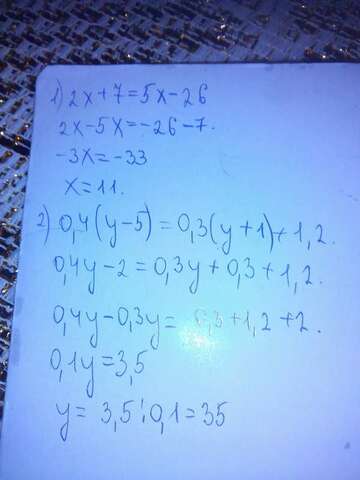 1) 2x+7=5x-26
2x-5x=-26-7.
-3x=-33
x=11.
2) 0,4(y-5)=0,3(y+1)+1,2.
0,4y-2=0,3y+0,3+1,2.
0,4y-0,3y= 0,3+1,2+2.
0,1y=3,5
y= 3,5:0,1=35